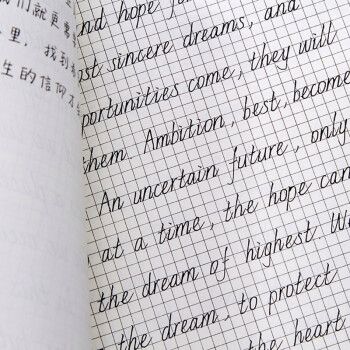 们就更
里，找到
生的信仰
and hope
st sincere dreams, and
portunities come, they will
them. Ambition, best, become
An uncertain future, only
at a time, the hope can
the dream of highest
the dream, to protect
the heart